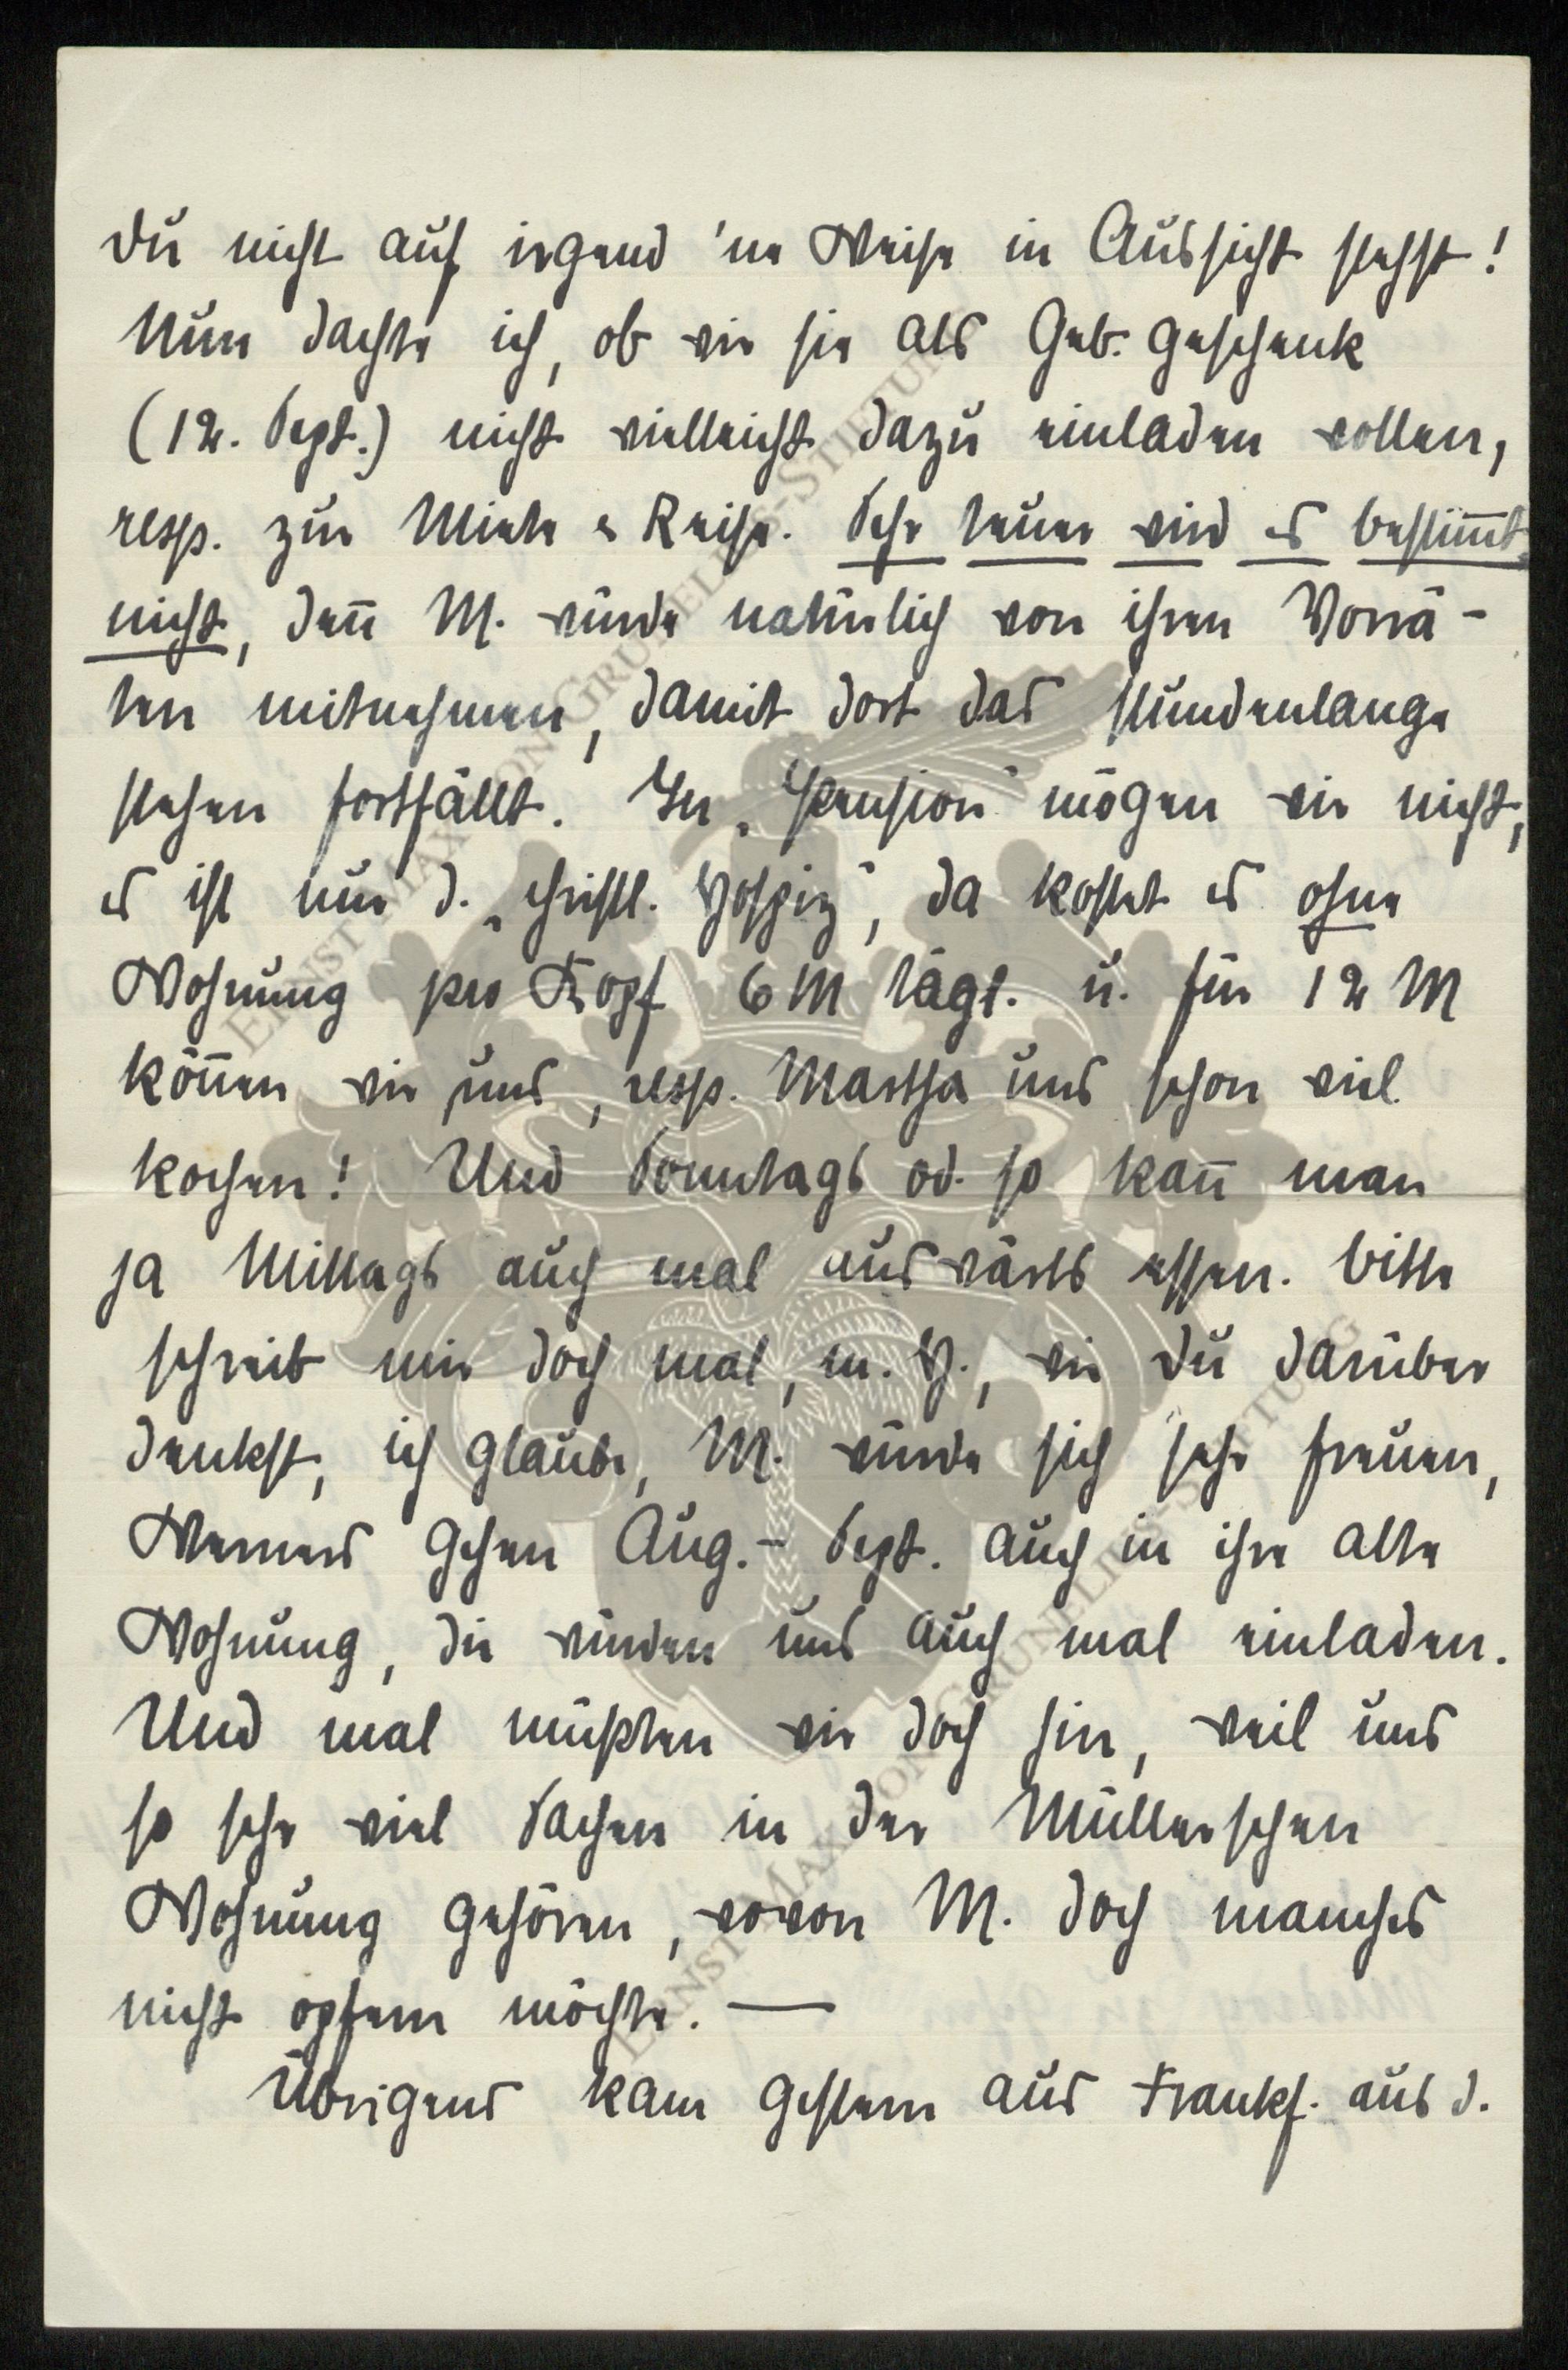 Du nicht auf irgend 'ne Weise in Aussicht stehst!
Nun dachte ich, ob wir sie als Geb. geschenk
(12. Sept.) nicht vielleicht dazu einladen wollen,
resp. zur Miete & Reise. Sehr teuer wird es bestim̅t
nicht, den̅ M. würde natürlich von ihren Vorrä-
ten mitnehmen, damit dort das stundenlange
stehen fortfällt. In „Pension" mögen wir nicht,
es ist nur d. „christl. Hospiz", da kostet es ohne
Wohnung pro Kopf 6 M tägl. u. für 12 M
kön̅en wir uns, resp. Martha uns schon viel
kochen! Und Sonntags od. so kan̅ man
ja Mittags auch mal auswärts essen. Bitte
schreib mir doch mal, m. H., wie Du darüber
denkst, ich glaube, M. würde sich sehr freuen,
Werners gehen Aug.- Sept. auch in ihre alte
Wohnung, die würden uns auch mal einladen.
Und mal müßten wir doch hin, weil uns
so sehr viel Sachen in der Müllerschen
Wohnung gehören, wovon M. doch manches
nicht opfern möchte. —
Übrigens kam gestern aus Frankf. aus d.
ERNST-MAX-VON-GRUNELIUS-STIFTUNG
ERNST-MAX-VON-GRUNELIUS-STIFTUNG